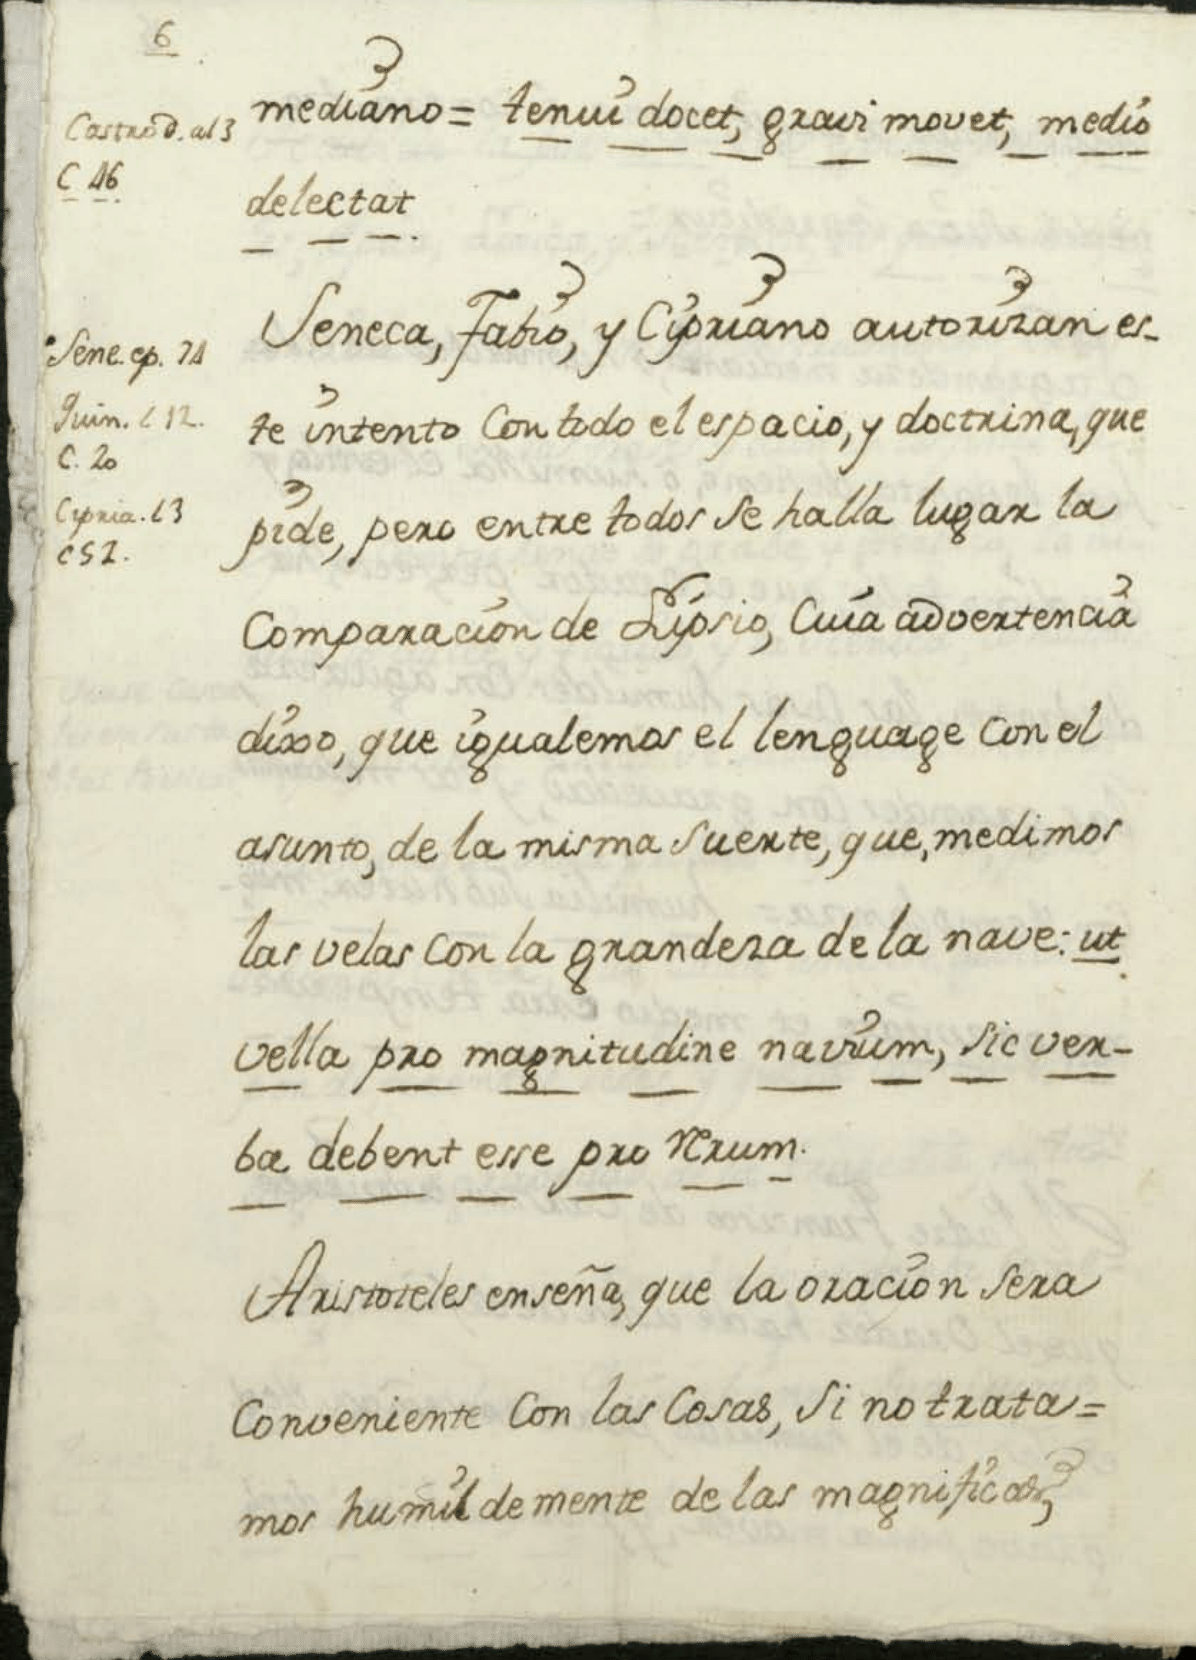 6
Castro d. al 3
C 46
mediano = tenui docet, gravi movet, medio
delectat
Sene. ep. 74
Quin. l 12.
C. 20
Cipria. l 3
c 52.
Seneca, Fabio, y Cipriano autorizan es-
te intento Con todo el espacio, y doctrina, que
pide, pero entre todos se halla lugar la
Comparacion de Lipsio, Cuia advertencia
dixo, que igualemos el lenguage Con el
asunto, de la misma Suerte, que, medimos
las velas Con la grandeza de la nave: ut
vella pro magnitudine navium, sic ver-
ba debent esse pro rerum.
Aristoteles enseña, que la oracion sera
Conveniente Con las Cosas, Si no trata=
mos humildemente de las magnificas,